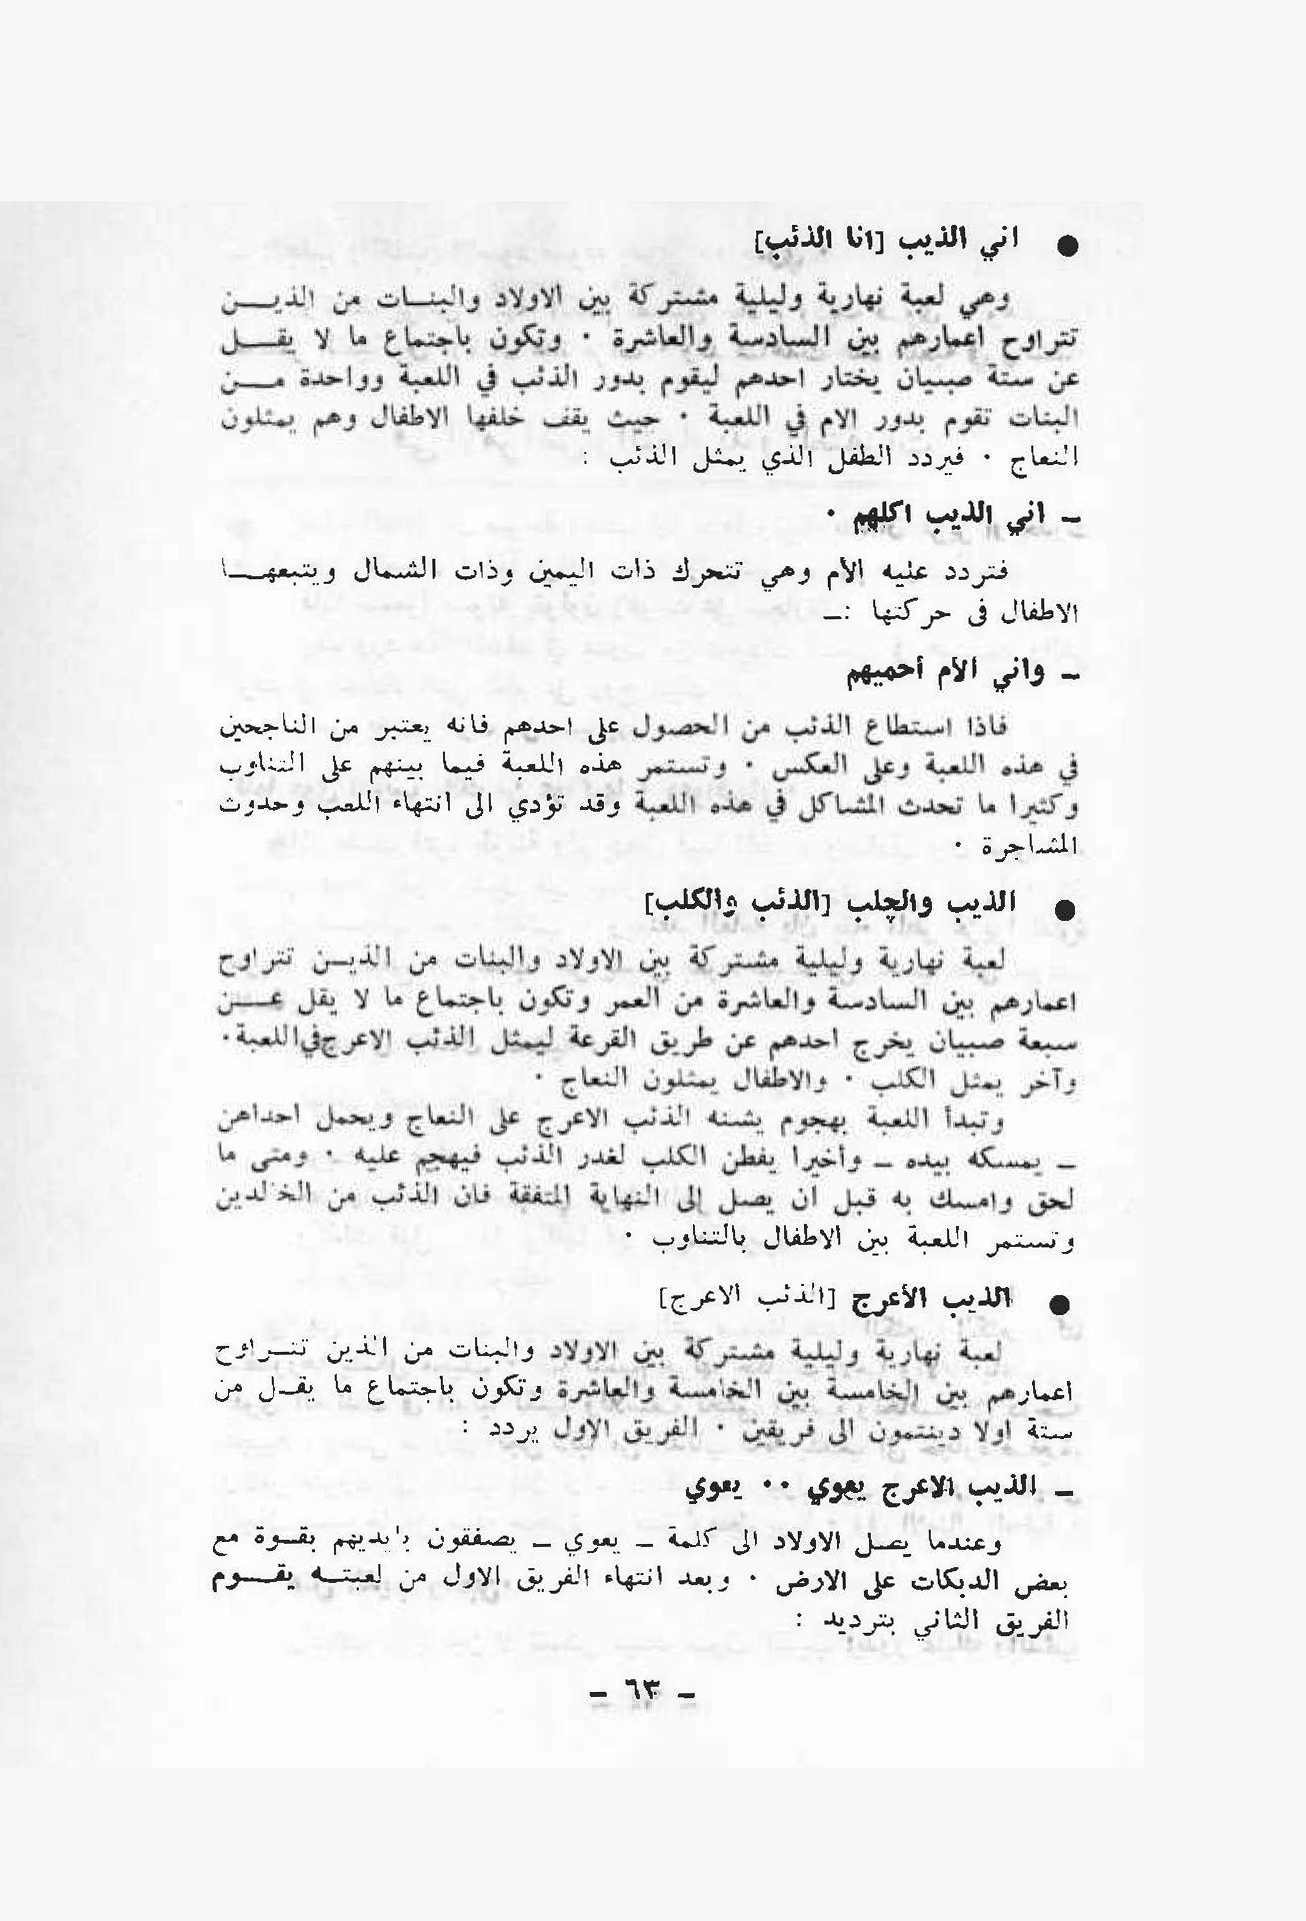 ● اني الذيب [انا الذئب]
وهي لعبة نهارية وليلية مشتركة بين الاولاد والبنات من الذين
تتراوح اعمارهم بين السادسة والعاشرة . وتكون باجتماع ما لا يقل
عن ستة صبيان يختار احدهم ليقوم بدور الذئب في اللعبة وواحدة من
البنات تقوم بدور الام في اللعبة . حيث يقف خلفها الاطفال وهم يمثلون
النعاج . فيردد الطفل الذي يمثل الذئب :
– اني الذيب اكلهم .
فتردد عليه الام وهي تتحرك ذات اليمين وذات الشمال ويتبعها
الاطفال فى حركتها :–
– واني الأم أحميهم
فاذا استطاع الذئب من الحصول على احدهم فانه يعتبر من الناجحين
في هذه اللعبة وعلى العكس . وتستمر هذه اللعبة فيما بينهم على التناوب
وكثيرا ما تحدث المشاكل في هذه اللعبة وقد تؤدي الى انتهاء اللعب وحدوث
المشاجرة .
● الذيب والچلب [الذئب والكلب]
لعبة نهارية وليلية مشتركة بين الاولاد والبنات من الذين تتراوح
اعمارهم بين السادسة والعاشرة من العمر وتكون باجتماع ما لا يقل عن
سبعة صبيان يخرج احدهم عن طريق القرعة ليمثل الذئب الاعرج في اللعبة .
وآخر يمثل الكلب . والاطفال يمثلون النعاج .
وتبدأ اللعبة بهجوم يشنه الذئب الاعرج على النعاج ويحمل احداهن
– يمسكه بيده – وأخيرا يفطن الكلب لغدر الذئب فيهجم عليه . ومتى ما
لحق وامسك به قبل ان يصل إلى النهاية المتفقة فان الذئب من الخالدين
وتستمر اللعبة بين الاطفال بالتناوب .
● الذيب الأعرج [الذئب الاعرج]
لعبة نهارية وليلية مشتركة بين الاولاد والبنات من الذين تتراوح
اعمارهم بين الخامسة بين الخامسة والعاشرة وتكون باجتماع ما يقل من
ستة اولا دينتمون الى فريقين . الفريق الاول يردد :
– الذيب الاعرج يعوي .. يعوي
وعندما يصل الاولاد الى كلمة – يعوي – يصفقون بايديهم بقوة مع
بعض الدبكات على الارض . وبعد انتهاء الفريق الاول من لعبته يقوم
الفريق الثاني بترديد :
– ٦٣ –